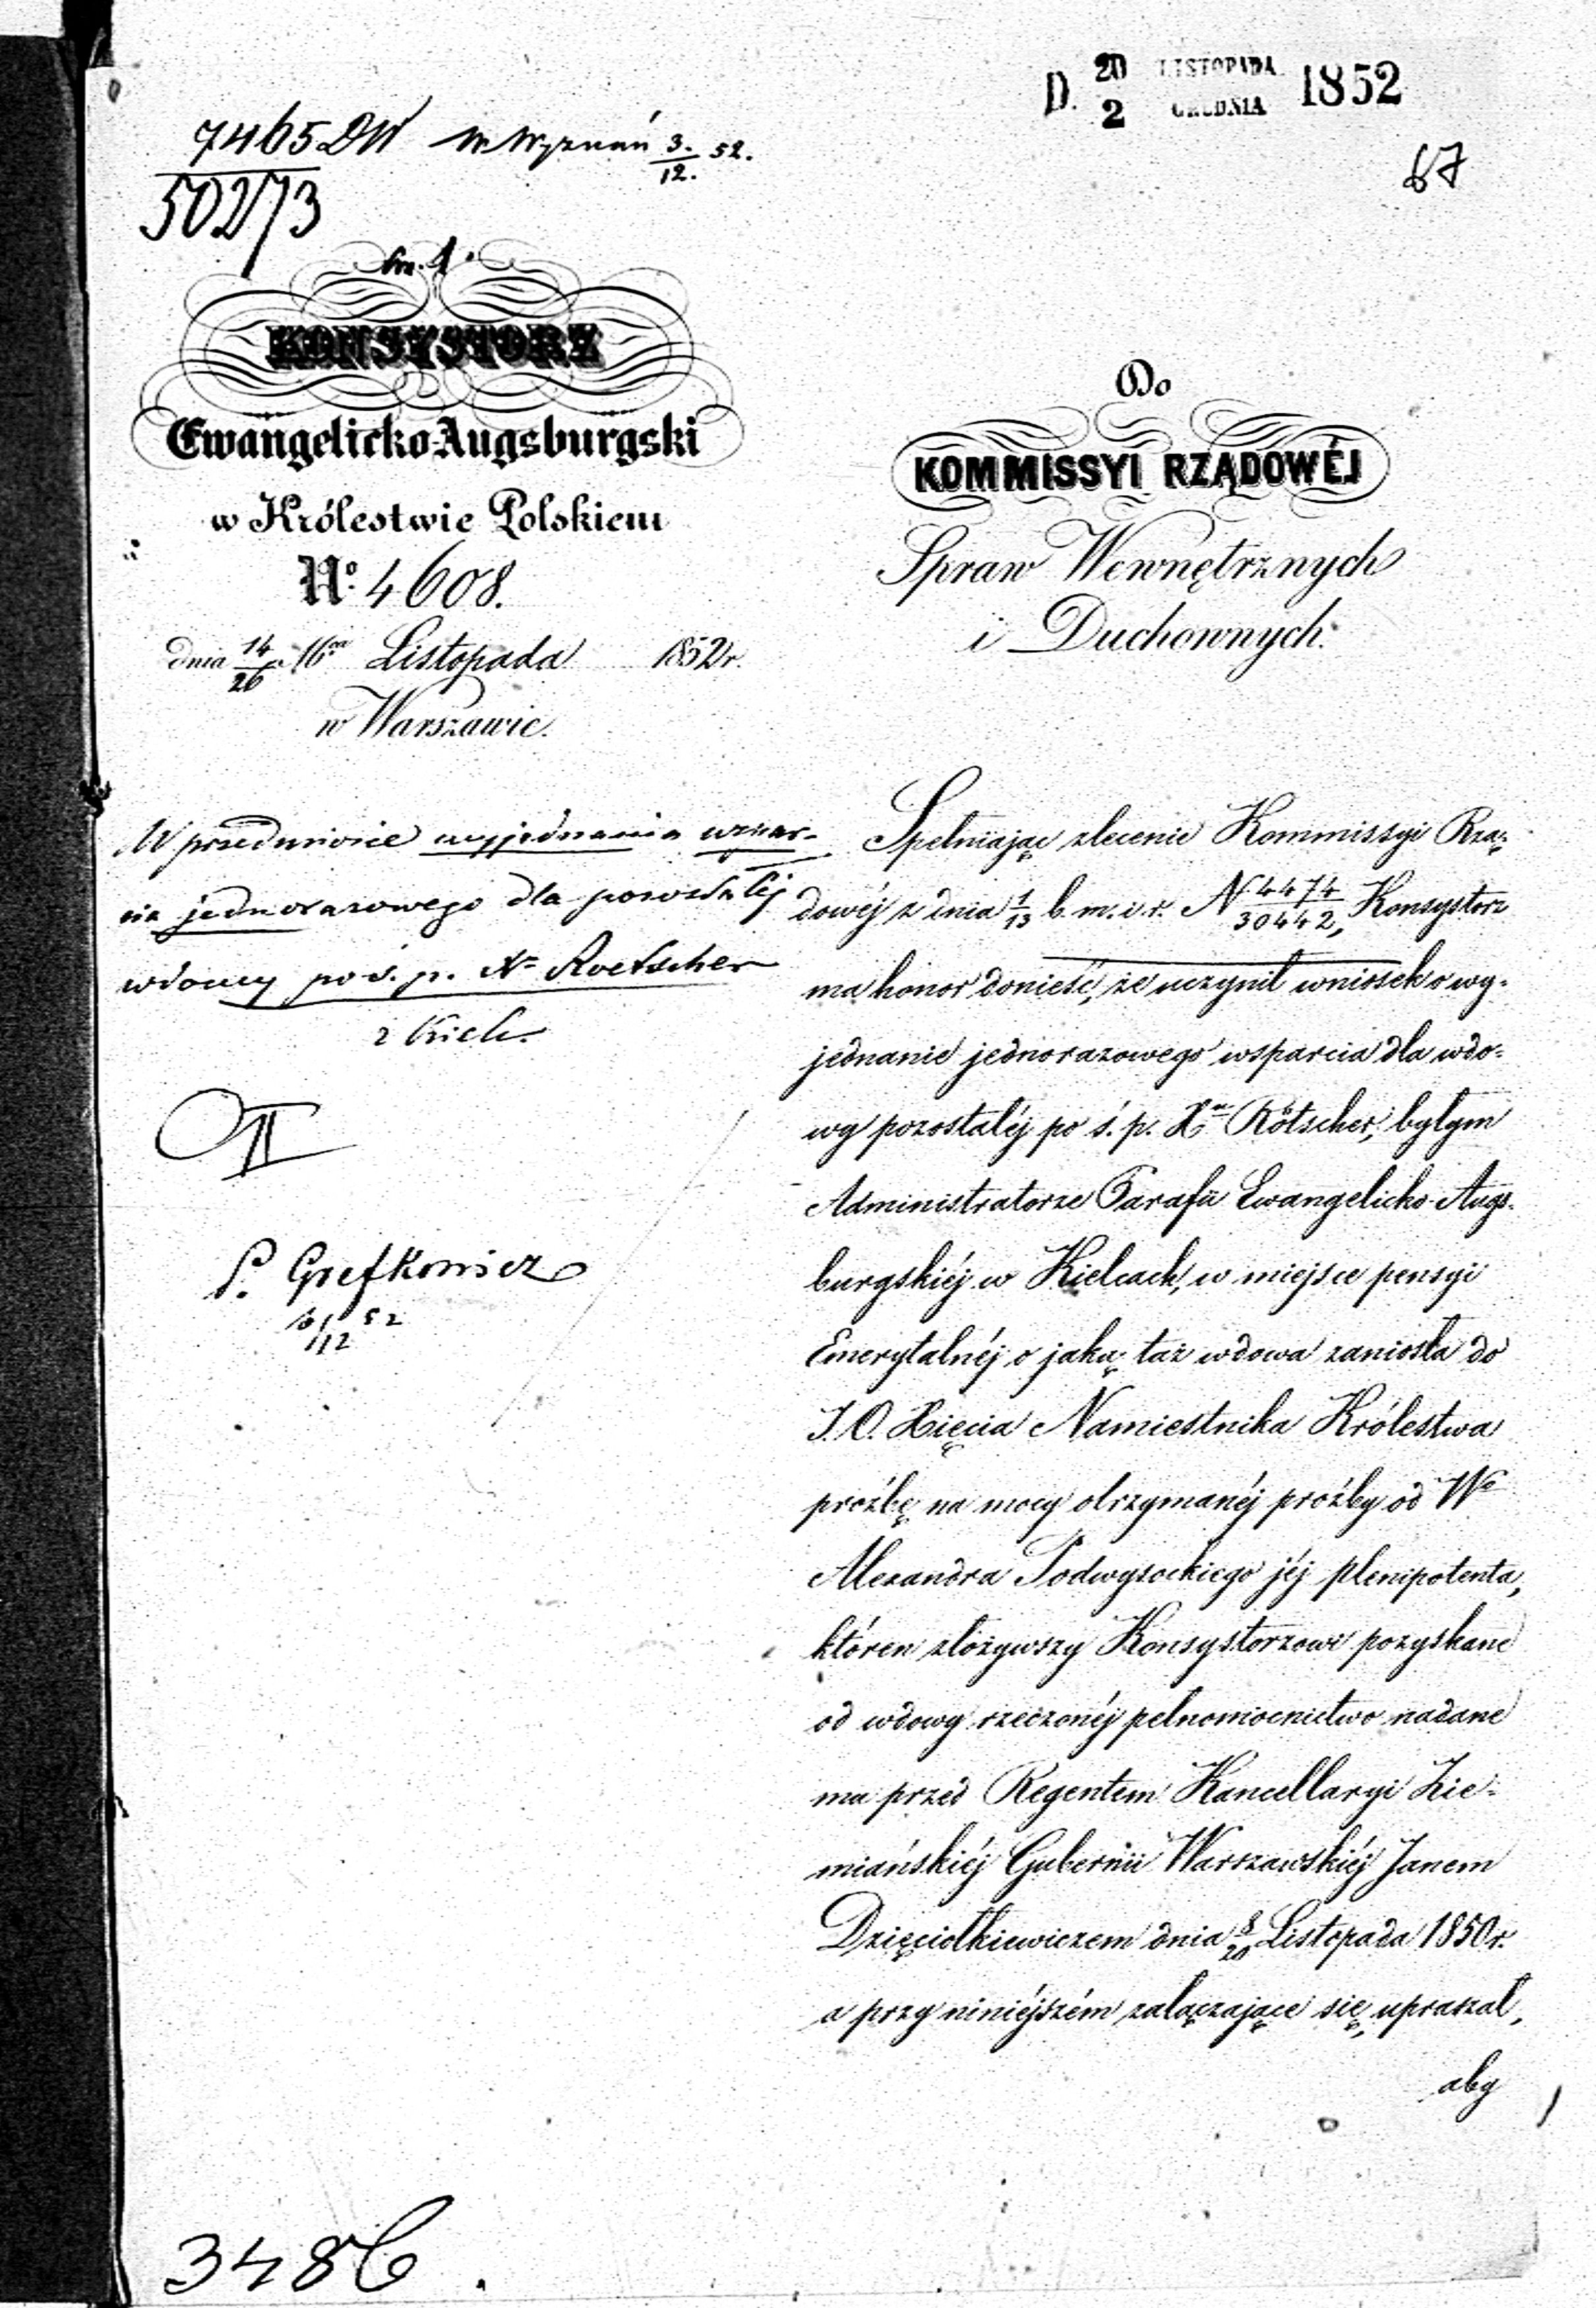 D. 20/2 LISTOPADA/GRUDNIA 1852
7465 DW W Wyznań 3./12. 52.
50273
67
KONSYSTORZ
Ewangelicko-Augsburgski
w Królestwie Polskiem
No. 4608.
dnia 14/26 16go Listopada 1852 r.
w Warszawie.
Do
KOMMISSYI RZĄDOWÉJ
Spraw Wewnętrznych
i Duchownych.
W przedmiocie wyjednania wspar-
cia jednorazowego dla pozostałéj
wdowy po ś. p. Xe Roetscher
z Kielc.
II
P. Grefkowicz
Spełniając zlecenie Kommissyi Rzą-
dowéj z dnia 1/13 b. m. i r. N 4474/30442, Konsystorz
ma honor donieść, że uczynił wniosek o wy-
jednanie jednorazowego wsparcia dla wdo-
wy pozostałéj po ś. p. Xu Rötscher, byłym
Administratorze Parafii Ewangelicko-Augs-
burgskiéj w Kielcach, w miejsce pensyi
Emerytalnéj o jaką taż wdowa zaniosła do
J. O. Xięcia Namiestnika Królestwa
proźbę na mocy otrzymanéj proźby od Wo
Alexandra Podwysockiego jéj plenipotenta,
któren złożywszy Konsystorzowi pozyskane
od wdowy rzeczonéj pełnomocnictwo nadane
mu przed Regentem Kancellaryi Zie-
miańskiéj Gubernii Warszawskiéj Janem
Dzięciołkiewiczem dnia 8/20 Listopada 1850 r.
a przy niniéjszém załączające się, upraszał,
aby
3486.